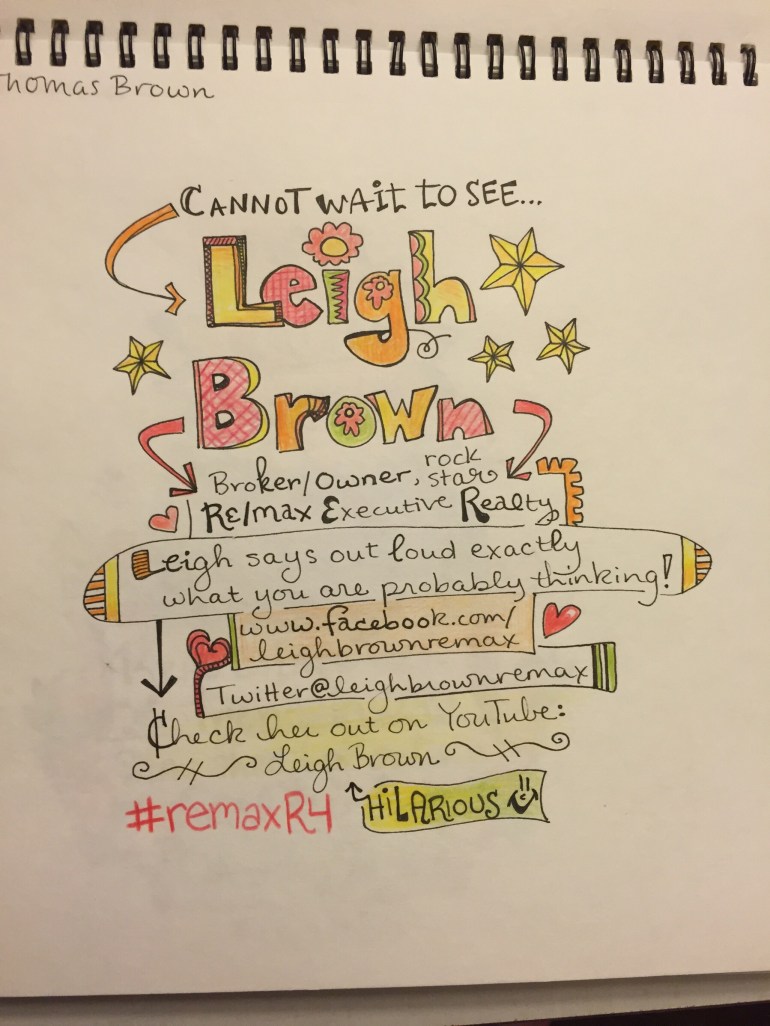 Thomas Brown
CANNOT WAit to SEE...
Leigh
Brown
Broker/Owner, rock star
RE/max Executive Realty
Leigh says out loud exactly
what you are probably thinking!
www.facebook.com/
leighbrownremax
Twitter@leighbrownremax
Check her out on YouTube:
Leigh Brown
#remaxR4
HiLARIOUS